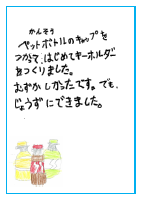 かんそう
ペットボトルのキャップを
つかって、はじめてキーホルダー
をつくりました。
むずかしかったです。でも、
じょうずにできました。